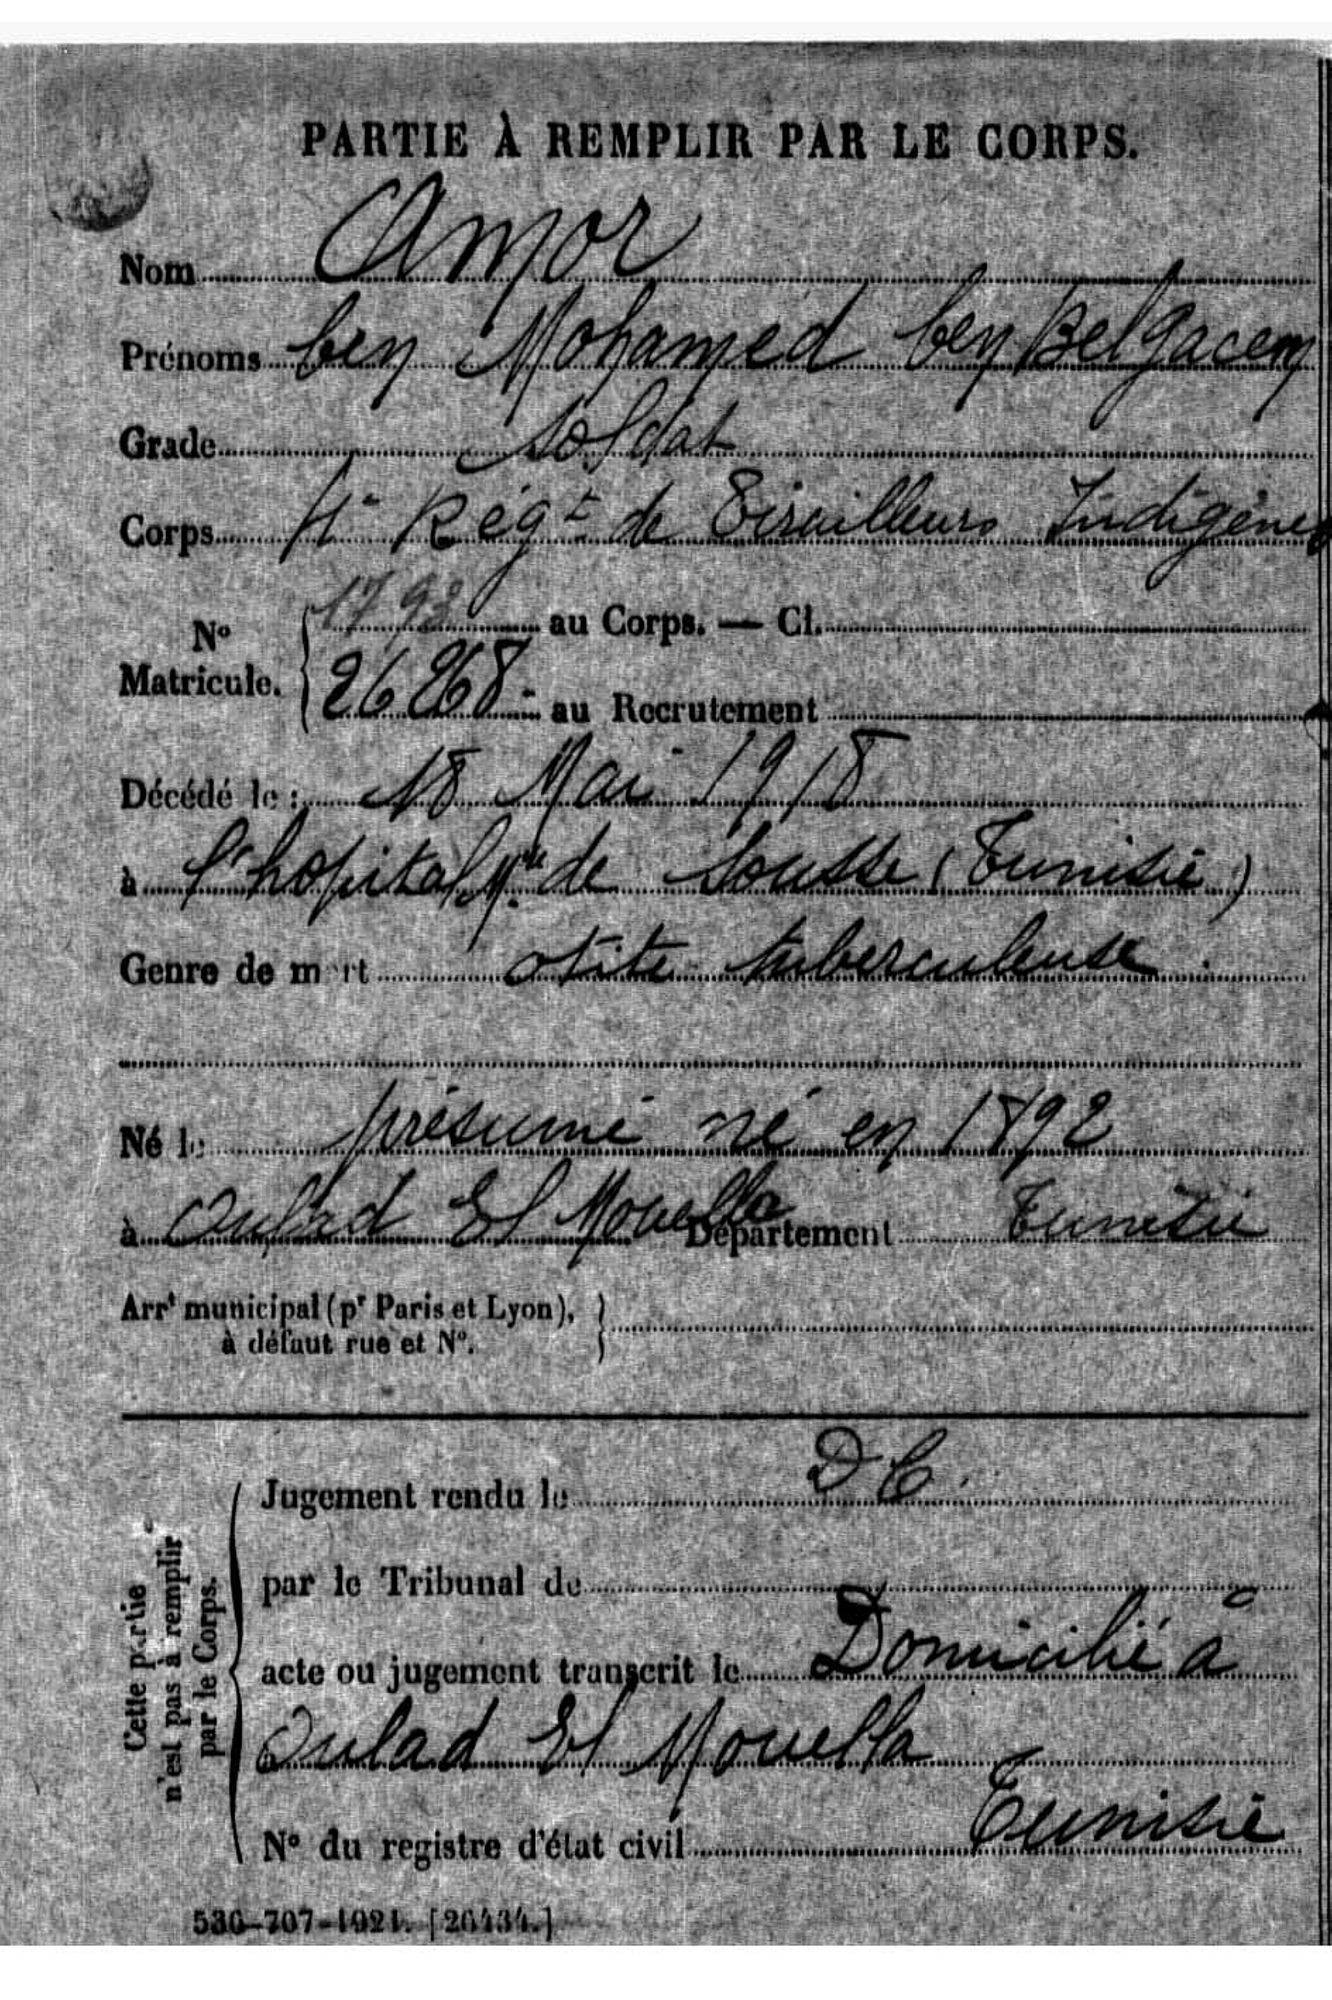 PARTIE À REMPLIR PAR LE CORPS.
Nom Amor
Prénoms ben Mohamed ben Belgacem
Grade Soldat
Corps 4e Régt de Tirailleurs Indigènes
No Matricule. 1793 au Corps. — Cl.
26268 au Recrutement
Décédé le : 18 Mai 1918
à l'hopital Mre de Sousse (Tunisie)
Genre de mort otite tuberculeuse.
Né le présumé né en 1892
à Oulad El Mouella Département Tunisie
Arrt municipal (pr Paris et Lyon),
à défaut rue et No.
Cette partie
n'est pas à remplir
par le Corps.
Jugement rendu le D C.
par le Tribunal de
acte ou jugement transcrit le Domicilié à
à Oulad El Mouella
No du registre d'état civil Tunisie
530-707-1921. [26434.]